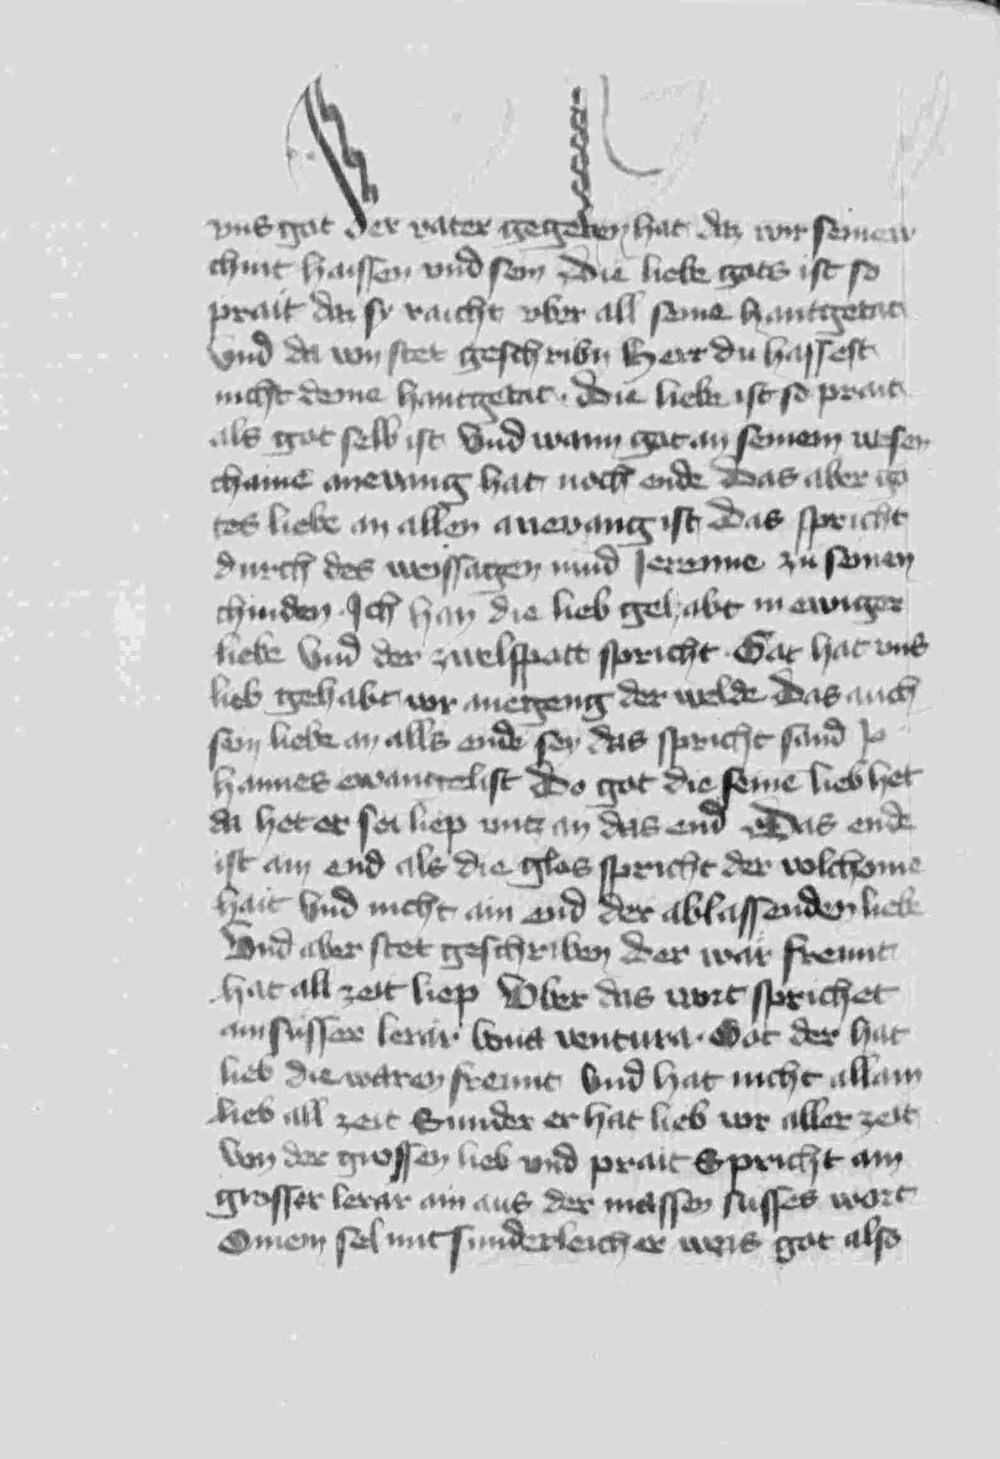 vns got der vater gegeben hat daz wir seinew
chint haissen vnd sein Die liebe gots ist so
prait daz sy raicht vber all seine hantgetat
Vnd da von stet geschribn Herr du hassest
nicht deine hantgetat · Die liebe ist so prait
als got selb ist Vnd wann got an seinem wesen
chaine anevang hat noch ende Das aber go
tes liebe an allen anevang ist Das spricht
durch des weissagen mund Jeremie zu seinen
chinden · Ich han die lieb gehabt in ewiger
liebe Vnd der zwelfpott spricht · Got hat vns
lieb gehabt vor anegeng der welde Das auch
sein liebe an alls ende sey das spricht sand Jo
hannes ewangelist Do got die seine lieb het
da het er sei liep vntz an das end Das ende
ist ain end als die glos spricht der volchome
hait Vnd nicht ain end der ablassenden liebe
Vnd aber stet geschriben Der war freunt
hat all zeit liep Vber das wort sprichet
ain süsser lerär · bona ventura · Got der hat
lieb die waren freunt Vnd hat nicht allain
lieb all zeit Sunder er hat lieb vor aller zeit
Von der grossen lieb vnd prait Spricht ain
grosser lerar ain aus der massen susses wort
O mein sel mit sunderleicher weis got also